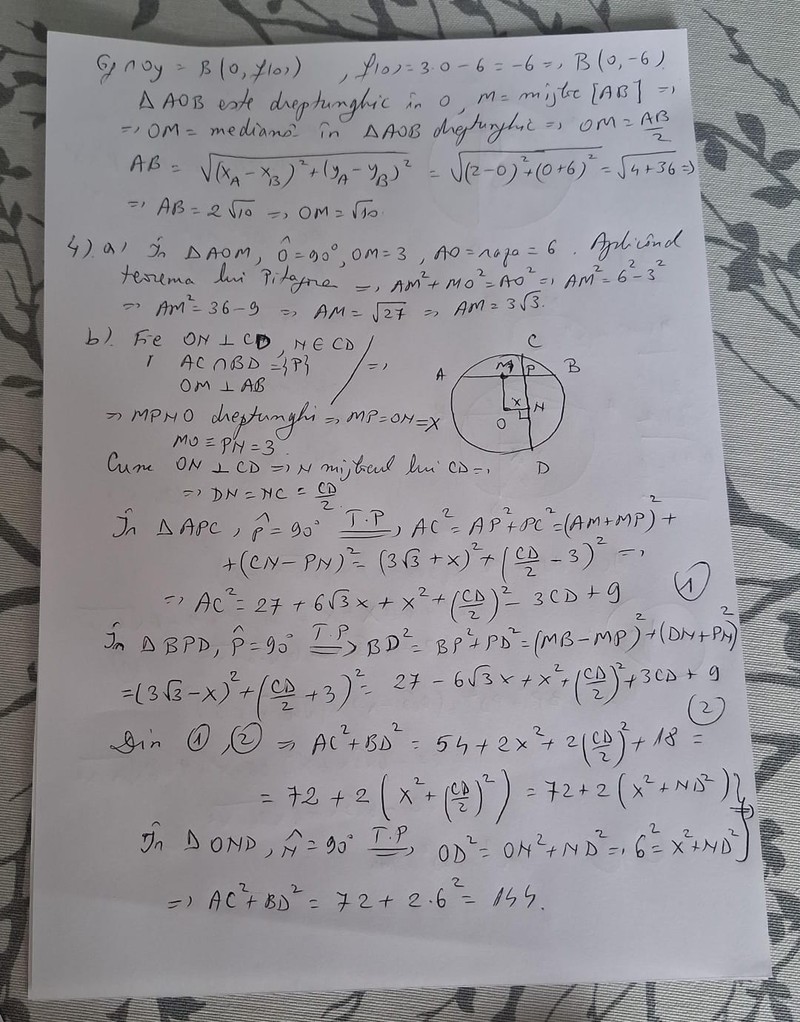 Gf ∩ Oy = B(0, f(0)) , f(0) = 3·0 - 6 = -6 ⇒ B(0, -6)
Δ AOB este dreptunghic în O, M = mijloc [AB] ⇒
⇒ OM = mediană în Δ AOB dreptunghic ⇒ OM = AB/2
AB = √((x_A - x_B)² + (y_A - y_B)²) = √((2-0)² + (0+6)²) = √(4+36) ⇒
⇒ AB = 2√10 ⇒ OM = √10.
4) a) În Δ AOM, Ô = 90°, OM = 3, AO = raza = 6. Aplicând
teorema lui Pitagora ⇒ AM² + MO² = AO² ⇒ AM² = 6² - 3²
⇒ AM² = 36 - 9 ⇒ AM = √27 ⇒ AM = 3√3.
b). Fie ON ⊥ CD, N ∈ CD
AC ∩ BD = {P} ⇒
OM ⊥ AB
C
A M P B
x N
O
D
⇒ MPNO dreptunghi ⇒ MP = ON = x
MO ≡ PN = 3.
Cum ON ⊥ CD ⇒ N mijlocul lui CD ⇒
⇒ DN = NC = CD/2.
În Δ APC, P̂ = 90° T.P ⇒ AC² = AP² + PC² = (AM + MP)² +
+ (CN - PN)² = (3√3 + x)² + (CD/2 - 3)² ⇒
⇒ AC² = 27 + 6√3x + x² + (CD/2)² - 3CD + 9 ①
În Δ BPD, P̂ = 90° T.P ⇒ BD² = BP² + PD² = (MB - MP)² + (DN + PN)²
= (3√3 - x)² + (CD/2 + 3)² = 27 - 6√3x + x² + (CD/2)² + 3CD + 9
②
Din ①, ② ⇒ AC² + BD² = 54 + 2x² + 2(CD/2)² + 18 =
= 72 + 2(x² + (CD/2)²) = 72 + 2(x² + ND²) } ⇒
În Δ OND, N̂ = 90° T.P ⇒ OD² = ON² + ND² ⇒ 6² = x² + ND²
⇒ AC² + BD² = 72 + 2·6² = 144.